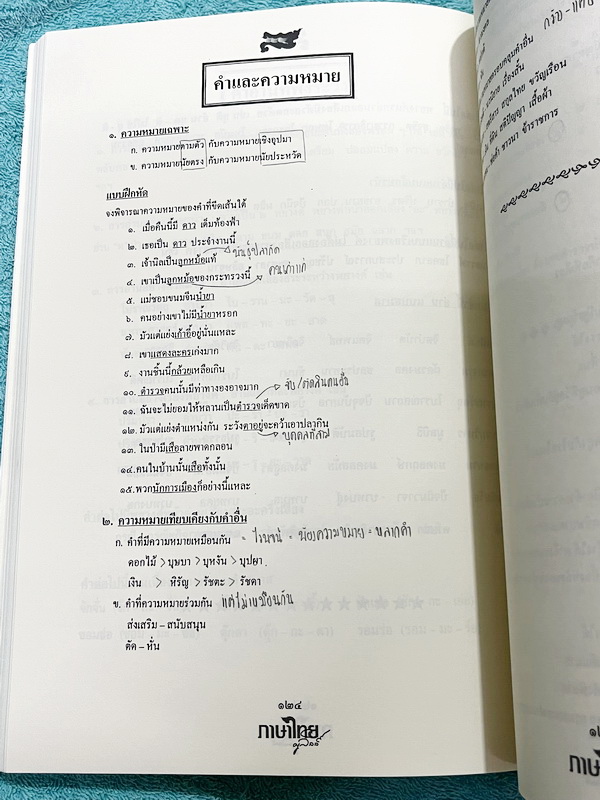 คำและความหมาย
๑. ความหมายเฉพาะ
ก. ความหมายตามตัว กับความหมายเชิงอุปมา
ข. ความหมายนัยตรง กับความหมายนัยประหวัด
แบบฝึกหัด
จงพิจารณาความหมายของคำที่ขีดเส้นใต้
๑. เมื่อคืนนี้มี ดาว เต็มท้องฟ้า
๒. เธอเป็น ดาว ประจำงานนี้
๓. เจ้านิลเป็นลูกหม้อแท้ พันธุ์ปลากัด
๔. เขาเป็นลูกหม้อของกระทรวงนี้ คนเก่าแก่
๕. แม่ชอบขนมจีนน้ำยา
๖. คนอย่างเขาไม่มีน้ำยาหรอก
๗. มัวแต่แย่งเก้าอี้อยู่นั่นแหละ
๘. เขาแสดงละครเก่งมาก
๙. งานชิ้นนี้กล้วยเหลือเกิน
๑๐. ตำรวจคนนั้นมีท่าทางองอาจมาก จับ/ตัดสินคนอื่น
๑๑. ฉันจะไม่ยอมให้หลานเป็นตำรวจเด็ดขาด
๑๒. มัวแต่แย่งตำแหน่งกัน ระวังตาอยู่จะคว้าเอาปลากิน
บุคคลที่สาม
๑๓. ในป่ามีเสือลายพาดกลอน
๑๔. คนในบ้านนั้นเสือทั้งนั้น
๑๕. พวกนักการเมืองก็อย่างนี้แหละ
๒. ความหมายเทียบเคียงกับคำอื่น
ก. คำที่มีความหมายเหมือนกัน = ไวพจน์ = พ้องความหมาย = หลากคำ
ดอกไม้ > บุษบา > บุหงัน > บุปผา
เงิน > หิรัญ > รัชตะ > รัชดา
ข. คำที่ความหมายร่วมกัน แต่ไม่เหมือนกัน
ส่งเสริม – สนับสนุน
ตัด – หั่น
๑๒๔
ภาษาไทย